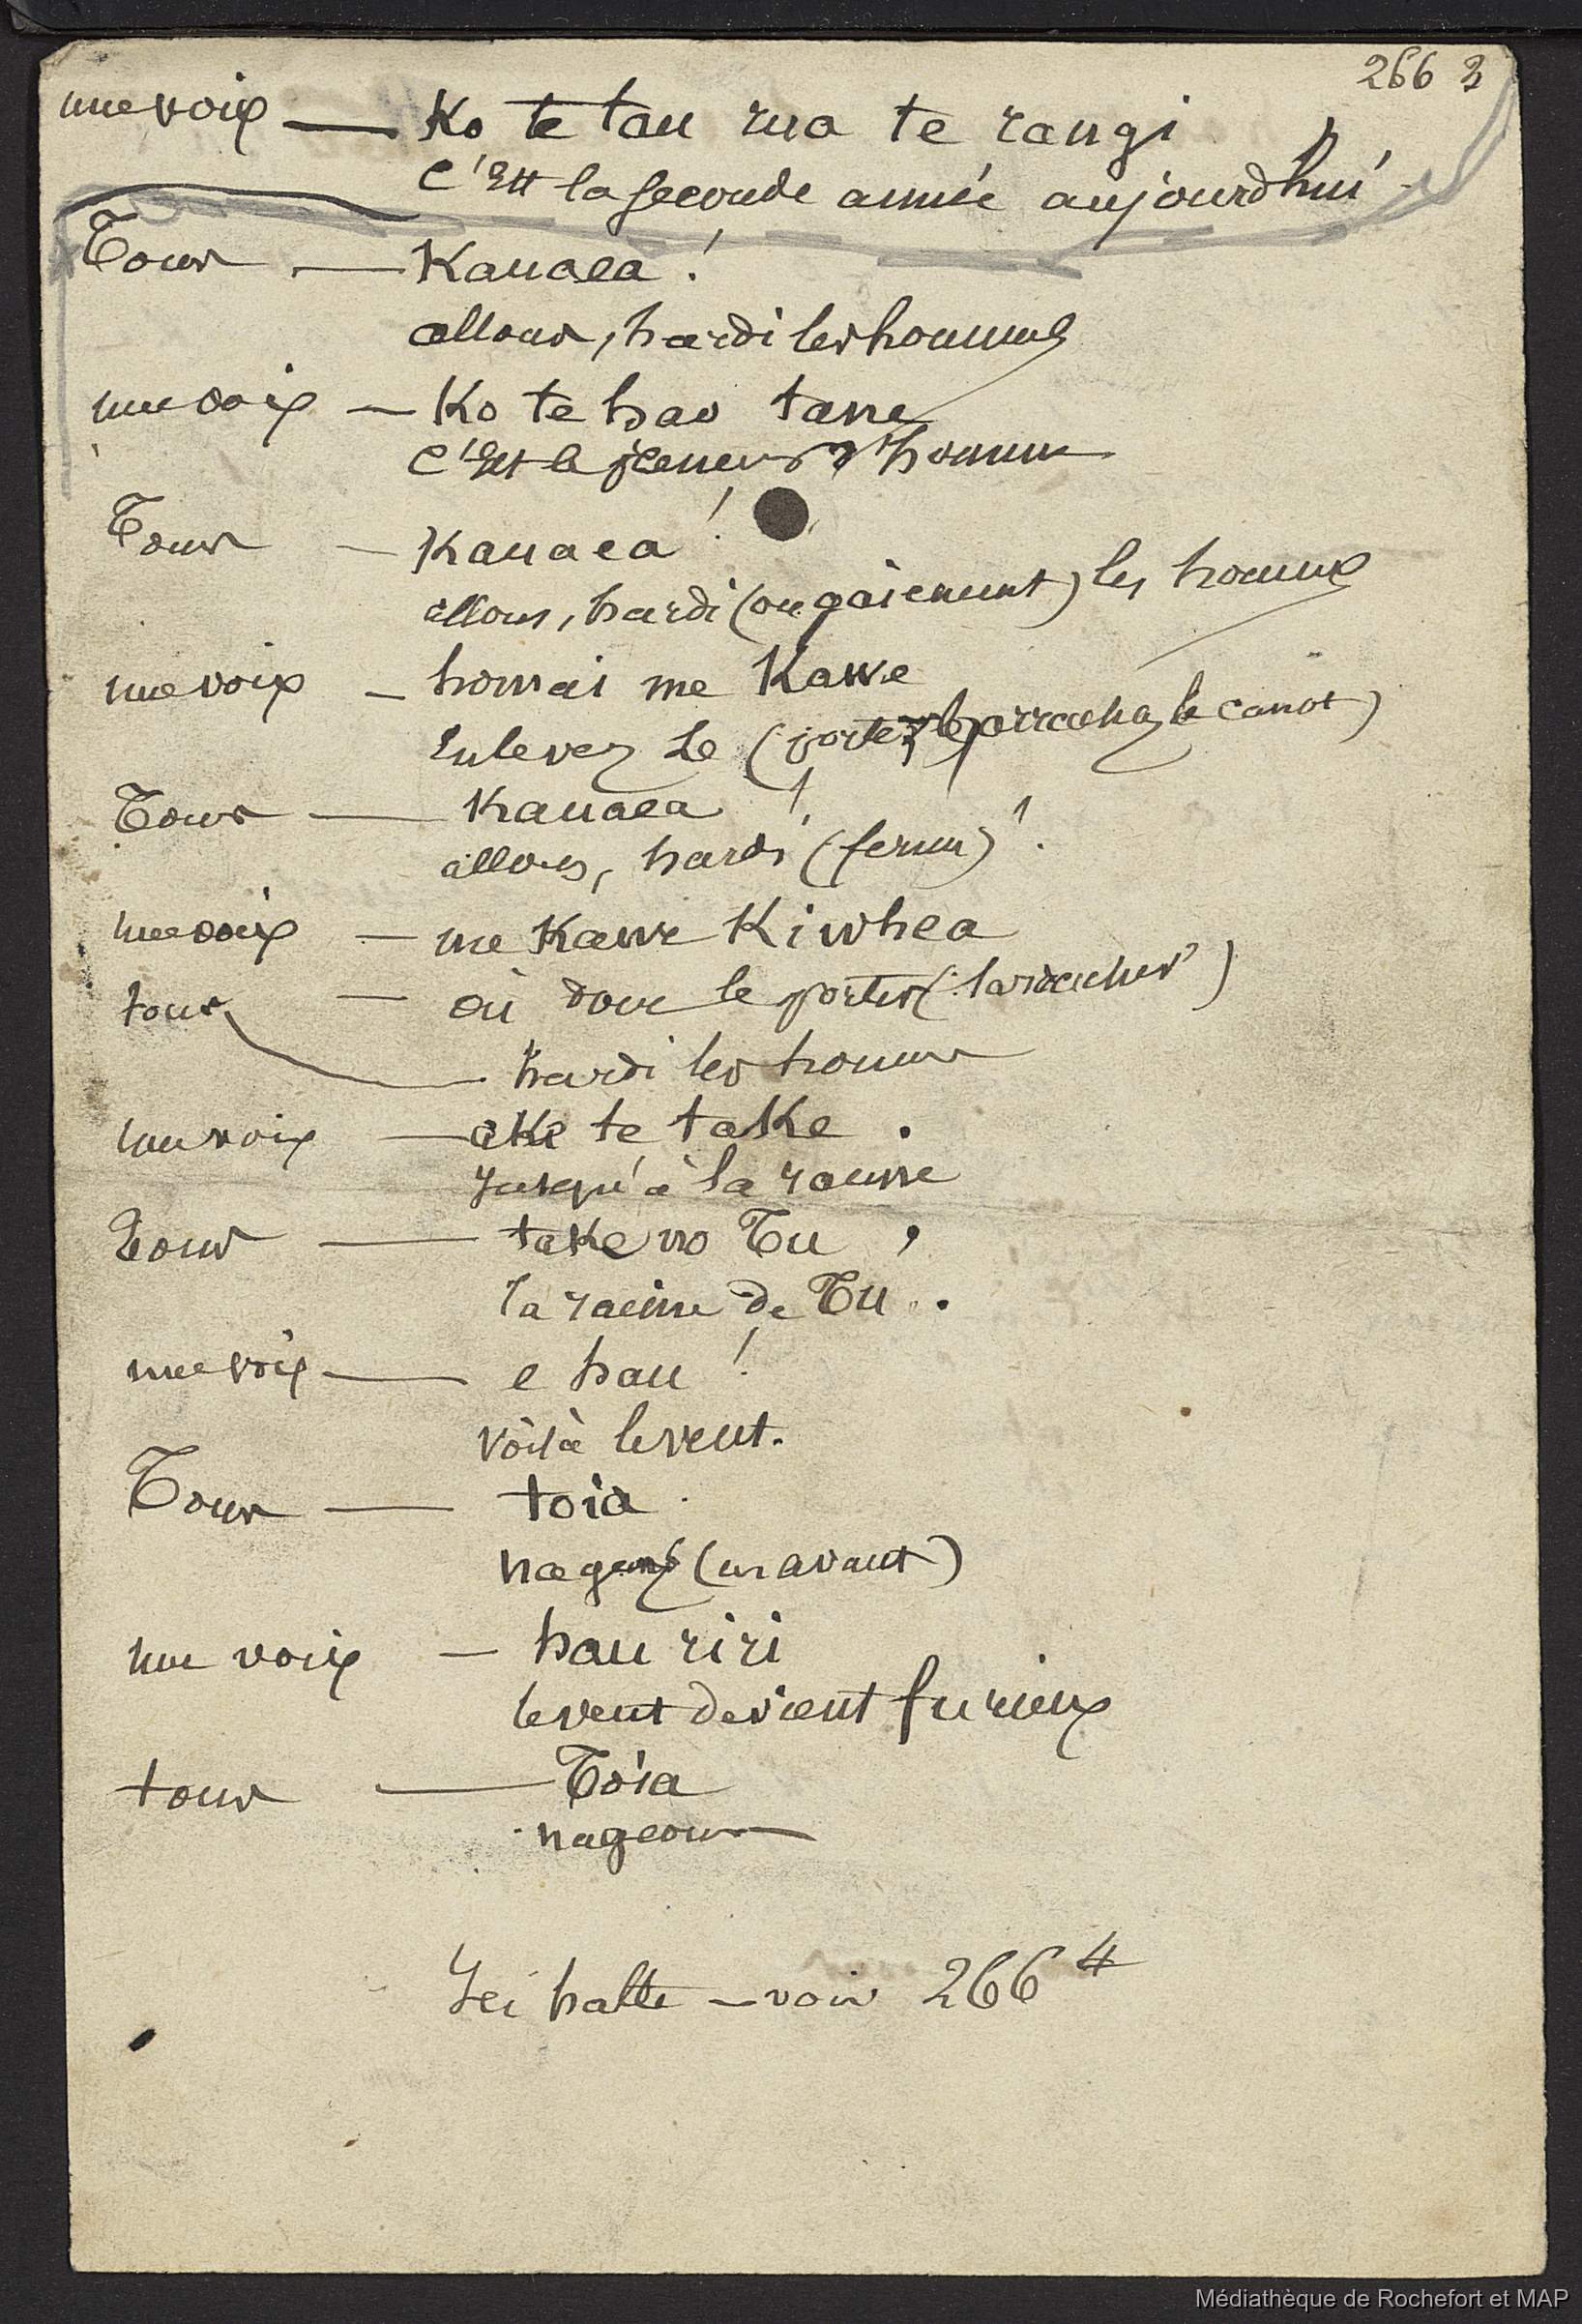 266 3
une voix — Ko te tau rua te rangi
c'Est la seconde année aujourdhui
Tous — Kauaea !
allons, hardi les hommes
une voix — Ko te hao tane
c'Est le d'homme
Tous — Kauaea !
allons, hardi (ou gaiement) les hommes
une voix — homai me Kawe
Enlevez Le (portez arrachez le canot)
Tous — Kauaea !
allons, hardi (ferme) !
une voix — me Kawe Ki whea
tous — où donc le porter (l'arracher)
hardi les hommes
une voix — ake te take .
Jusqu'à la racine
Tous — take no Tu ,
la racine de Tu .
une voix — e hau !
voilà le vent.
Tous — toia .
nagez (en avant)
une voix — hau riri
le vent devient furieux
tous — Toia
nageons
Ici halte — voir 266 4
Médiathèque de Rochefort et MAP